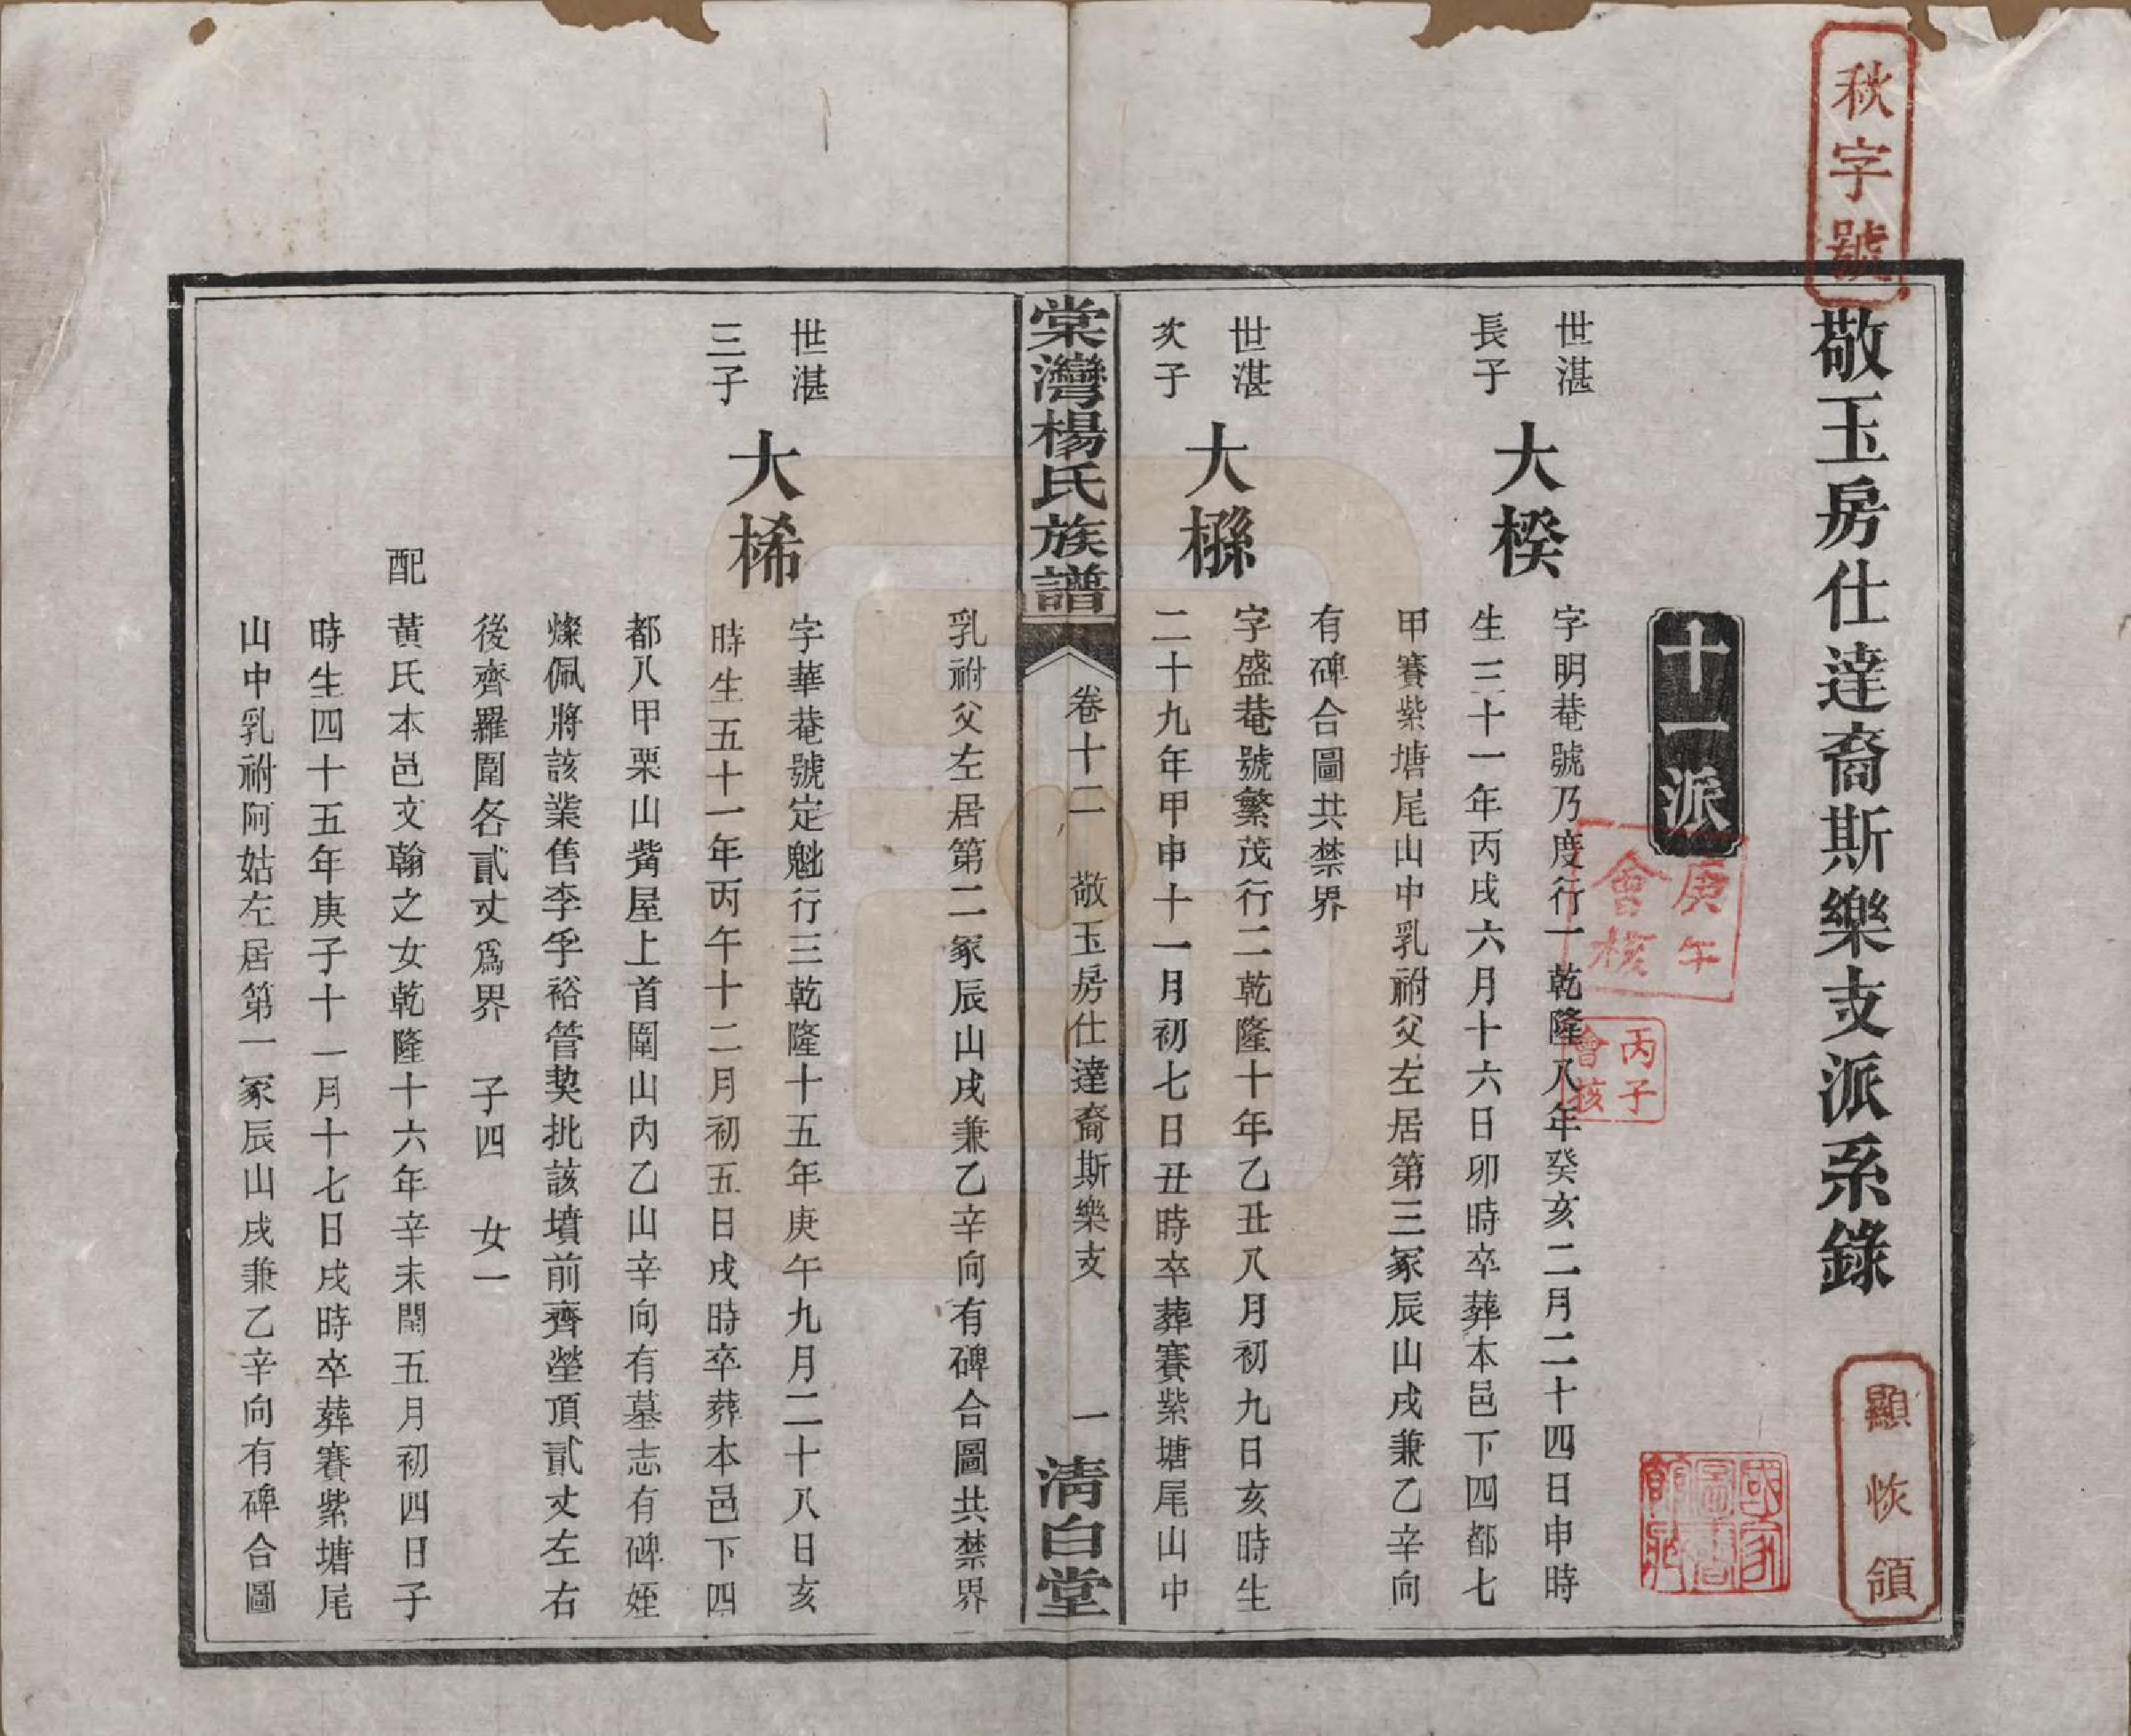 秋字號
敬玉房仕達裔斯樂支派系錄
顯恢領
十一派
庚午會核
丙子會核
國家圖書館藏
世湛長子
大楑
字明菴號乃度行一乾隆八年癸亥二月二十四日申時
生三十一年丙戌六月十六日卯時卒葬本邑下四都七
甲賽紫塘尾山中乳祔父左居第三冢辰山戌兼乙辛向
有碑合圖共禁界
世湛次子
大檰
字盛菴號繁茂行二乾隆十年乙丑八月初九日亥時生
二十九年甲申十一月初七日丑時卒葬賽紫塘尾山中
棠灣楊氏族譜
卷十二 敬玉房仕達裔斯樂支 一
清白堂
乳祔父左居第二冢辰山戌兼乙辛向有碑合圖共禁界
世湛三子
大桸
字華菴號定魁行三乾隆十五年庚午九月二十八日亥
時生五十一年丙午十二月初五日戌時卒葬本邑下四
都八甲栗山觜屋上首圍山內乙山辛向有墓志有碑姪
燦佩將該業售李孚裕管契批該墳前齊塋頂貳丈左右
後齊羅圍各貳丈爲界 子四 女一
配 黃氏本邑文翰之女乾隆十六年辛未閏五月初四日子
時生四十五年庚子十一月十七日戌時卒葬賽紫塘尾
山中乳祔阿姑左居第一冢辰山戌兼乙辛向有碑合圖